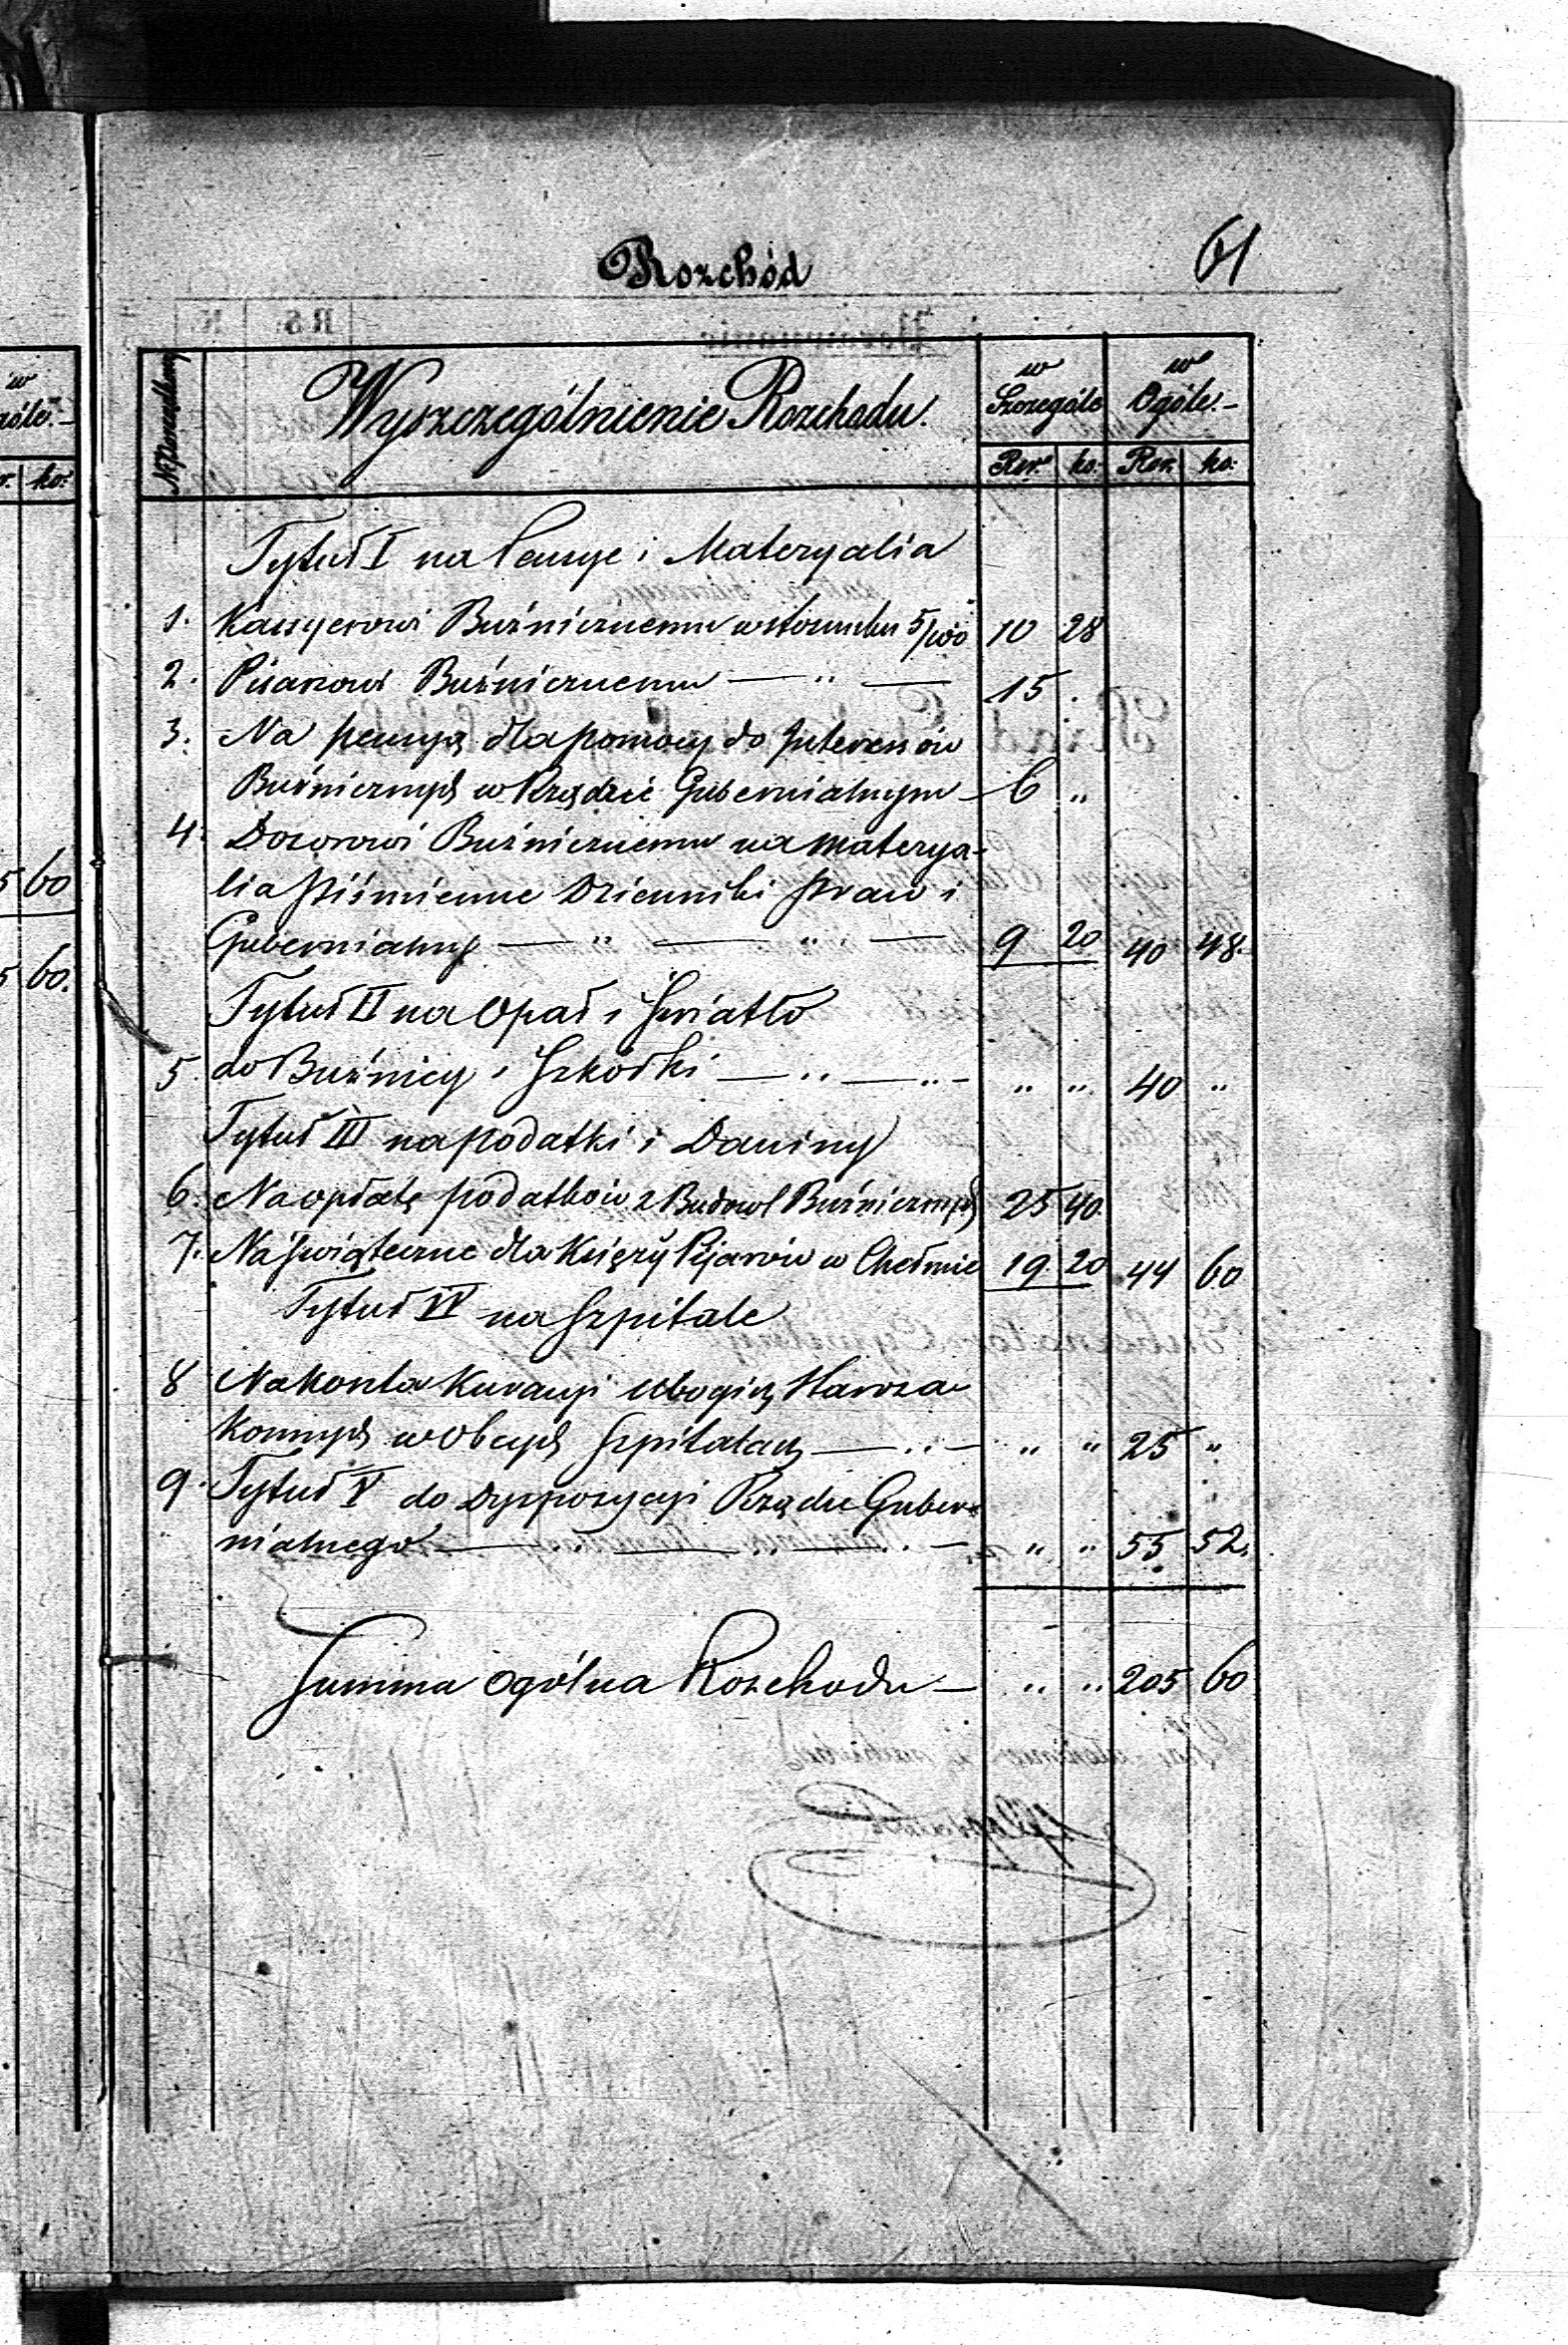 Rozchód
61
№ Porządkowy
Wyszczególnienie Rozchodu.
w Szczególe
w Ogóle.-
Rsr. ko: Rsr. ko:
Tytuł I na Pensye i Materyalia
1. Kassyerowi Buźnicznemu w stosunku 5/100 10 28
2. Pisarzowi Buźnicznemu — " — 15 .
3. Na pensyą dla pomocy do Interessów
Buźnicznych w Rządzie Gubernialnym - 6 "
4. Dozorowi Buźnicznemu na materya-
lia piśmienne Dzienniki praw i
Gubernialny — " — " — 9 20 40 48.
Tytuł II na Opał i Światło
5. do Buźnicy i Szkółki — " — " - " " 40 "
Tytuł III na podatki i Daniny
6. Na opłatę podatków z Budowl Buźnicznych 25 40.
7. Na Świąteczne dla Księży Pijarów w Chełmie 19 20 44 60
Tytuł IV na Szpitale
8 Na konta Kuracyi Ubogich Staroza-
konnych w Obcych Szpitalach — " - " " 25 "
9. Tytuł V do Dyspozycyi Rządu Guber-
nialnego — " — " — " - " " 55 52.
Summa ogólna Rozchodu — " " 205 60
w
góle.-
r. ko:
5 60
5 60.